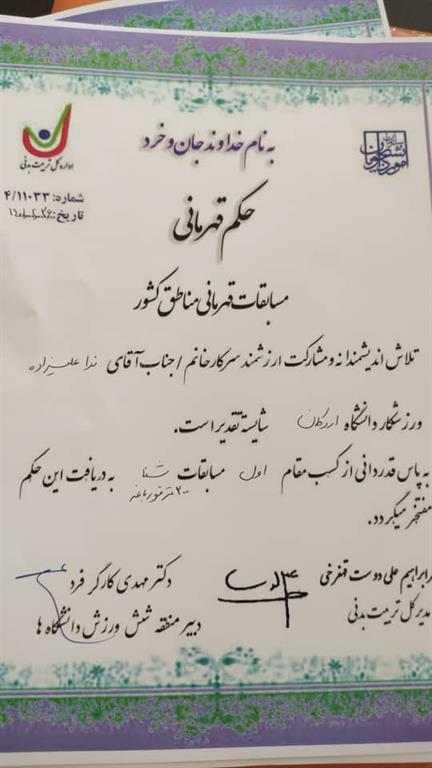 به نام خداوند جان و خرد
سازمان امور دانشجویان
اداره کل تربیت بدنی
شماره: ۴/۱۱۰۳۳
تاریخ:
حکم قهرمانی
مسابقات قهرمانی مناطق کشور
تلاش اندیشمندانه و مشارکت ارزشمند سرکار خانم / جناب آقای ندا علیزاده
ورزشکار دانشگاه اردکان شایسته تقدیر است.
به پاس قدردانی از کسب مقام اول مسابقات شنا به دریافت این حکم
۲۰۰ متر قورباغه
مفتخر میگردد.
ابراهیم علی دوست قهفرخی
مدیر کل تربیت بدنی
دکتر مهدی کارگر فرد
دبیر منطقه شش ورزش دانشگاه ها